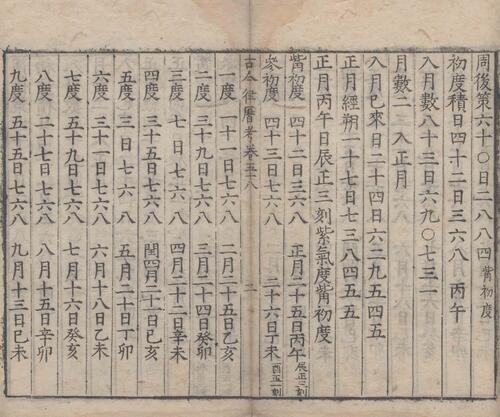 周後策六十〇日二八八四觜初度
初度積日四十二日三六八 丙午
入月數八十三日六九〇七三一
月數二 入正月
入月已來日二十四日六二九五四五
正月經朔一十七日七三八四五五
正月丙午日辰正三刻紫氣度觜初度
觜初度 四十二日三六八 正月二十五日丙午辰正三刻
參初度 四十三日七六八 二十六日丁未酉正一刻
古今律曆考卷五八 二
一度 一十一日七六八 二月二十五日乙亥
二度 三十九日七六八 三月二十四日癸卯
三度 七日七六八 四月二十二日辛未
四度 三十五日七六八 閏四月二十一日己亥
五度 三日七六八 五月二十日丁卯
六度 三十一日七六八 六月十八日乙未
七度 五十九日七六八 七月十六日癸亥
八度 二十七日七六八 八月十五日辛卯
九度 五十五日七六八 九月十三日己未